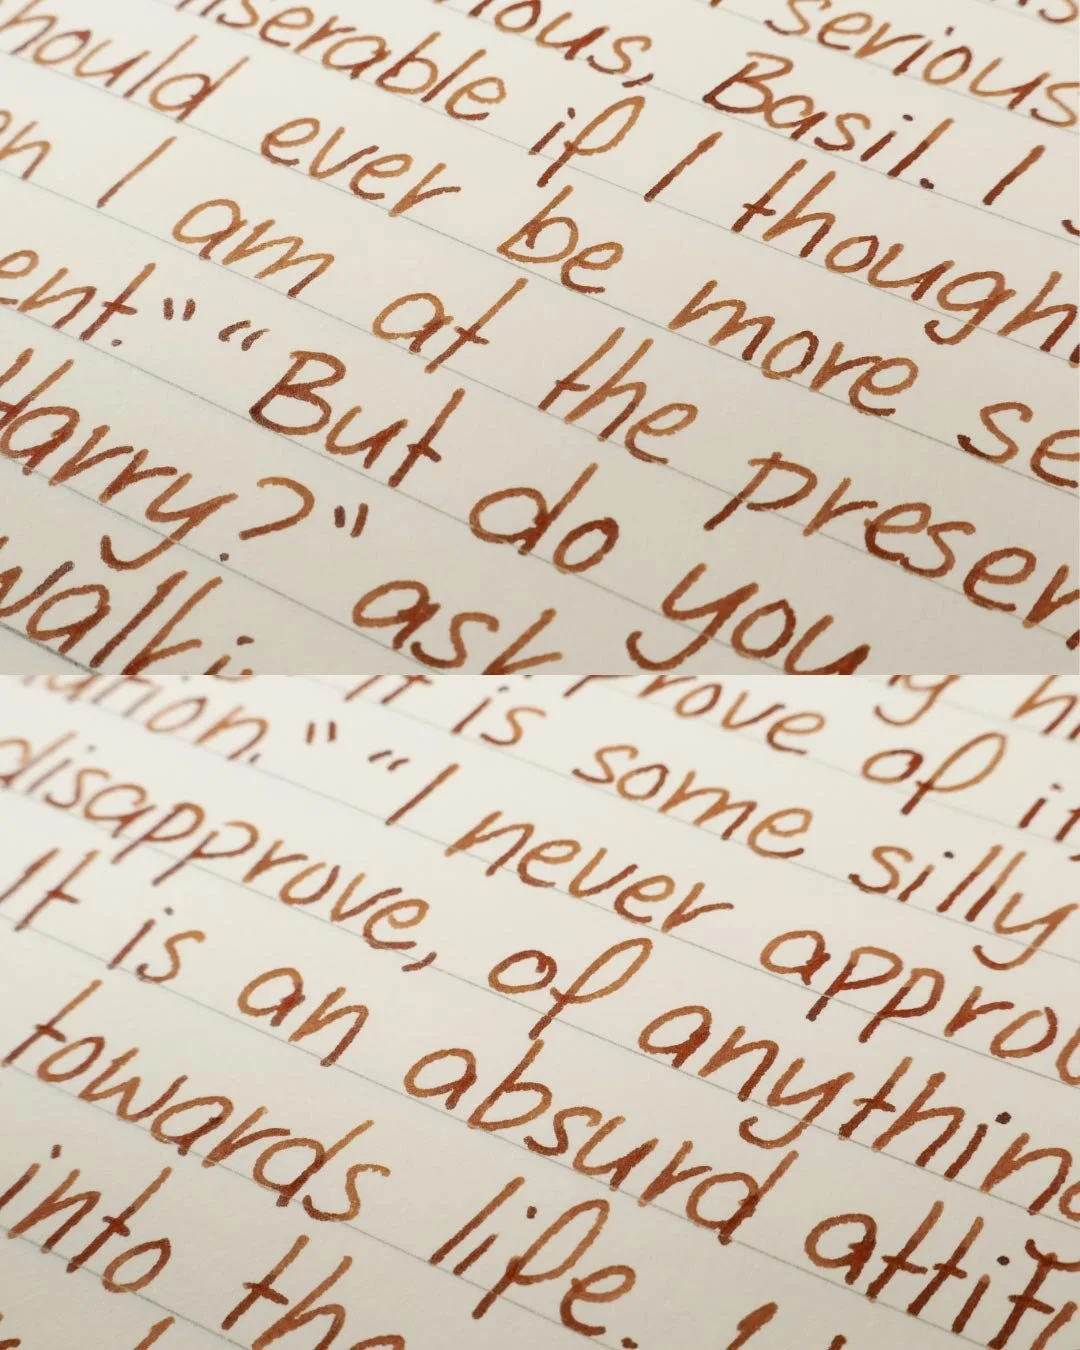 serious
ious, Basil. I s
iserable if I though
hould ever be more se
en I am at the presen
ent." "But do you
Harry?" ask
walki
g hi
prove of it
It is some silly
uation." "I never approv
disapprove, of anything
It is an absurd attit
towards life.
into the